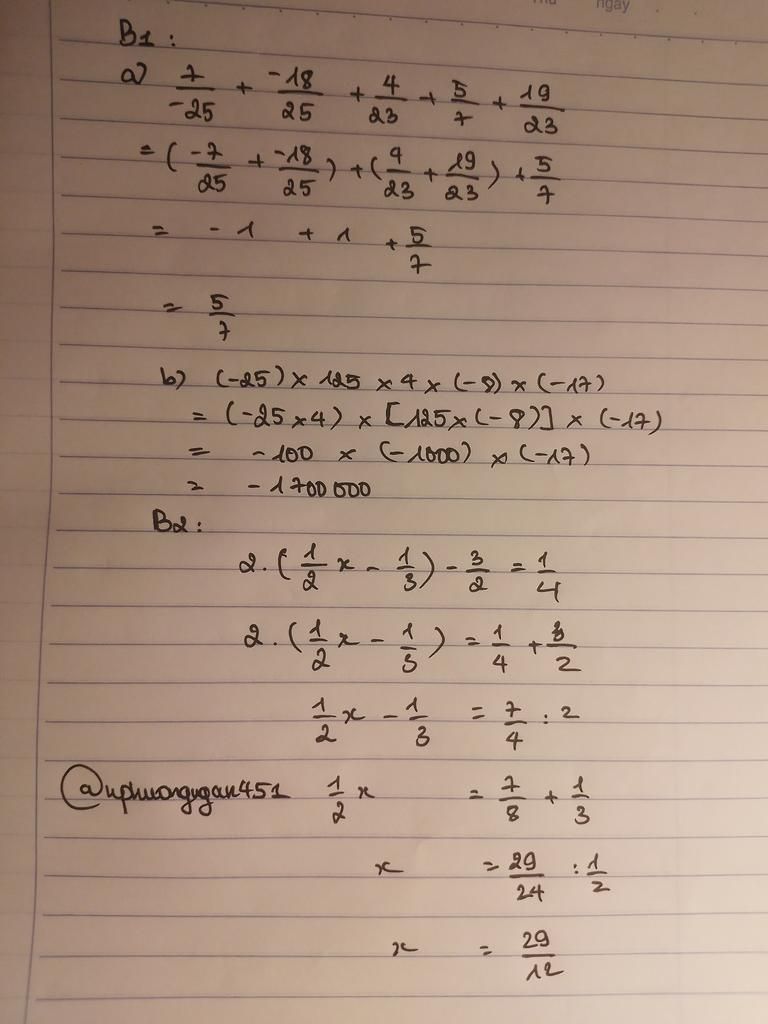 ngày
B1:
a) 7/-25 + -18/25 + 4/23 + 5/7 + 19/23
= (-7/25 + -18/25) + (4/23 + 19/23) + 5/7
= -1 + 1 + 5/7
= 5/7
b) (-25) x 125 x 4 x (-8) x (-17)
= (-25 x 4) x [125 x (-8)] x (-17)
= -100 x (-1000) x (-17)
= -1700000
B2:
2.(1/2 x - 1/3) - 3/2 = 1/4
2.(1/2 x - 1/3) = 1/4 + 3/2
1/2 x - 1/3 = 7/4 : 2
@nphuongngan451 1/2 x = 7/8 + 1/3
x = 29/24 : 1/2
x = 29/12